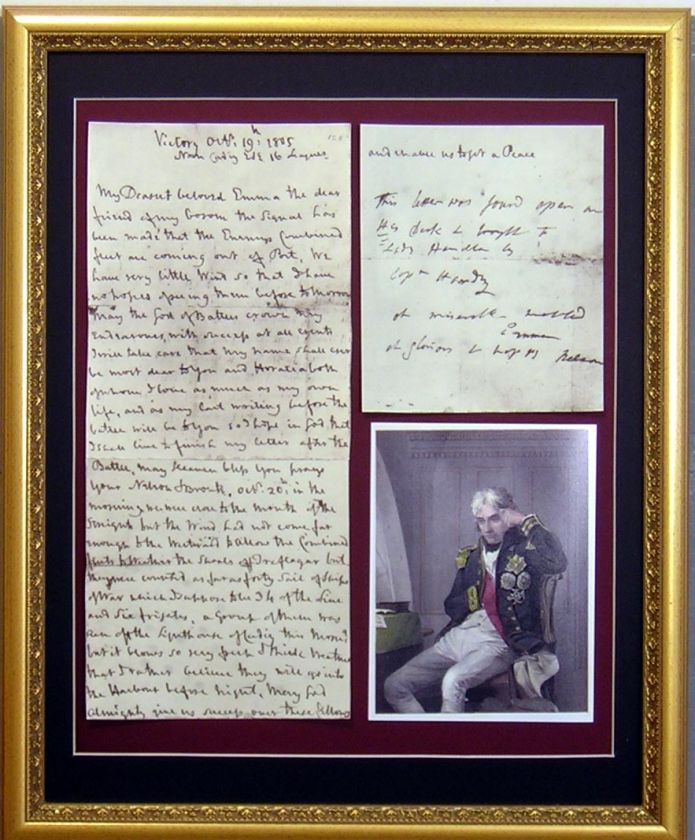 Victory Octr. 19th. 1805
Noon Cadiz ESE 16 Leagues
My Dearest beloved Emma the dear
friend of my bosom the Signal has
been made that the Enemys Combined
fleet are coming out of Port, We
have very little Wind so that I have
no hopes of seeing them before tomorrow
May the God of Battles crown my
Endeavours with success at all events
I will take care that my name shall ever
be most dear to You and Horatia both
of whom I love as much as my own
life, and as my last writing before the
battle will be to You so I hope in God that
I shall live to finish my letter after the
Battle, may Heaven bless You prays
Your Nelson & Bronte, Octr. 20th, in the
morning we were close to the mouth of the
Streights but the Wind had not come far
enough to the Westward to allow the Combined
fleets to Weather the Shoals of Trafalgar but
they were counted as far as forty Sail of Ships
of War which I suppose to be 34 of the Line
and Six frigates, a Group of them was
seen off the Lighthouse of Cadiz this Morng
but it blows so very fresh & thick weather
that I rather believe they will go into
the Harbour before night, May God
Almighty give us success over these fellows
and enable us to get a Peace
This letter was found open on
His Desk & brought to
Lady Hamilton by
Captn Hardy
oh miserable wretched
Emma
oh glorious & happy Nelson